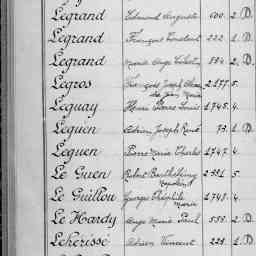 Legrand Edmond Auguste 600. 2 D.
Legrand François Constant 222. 1 D.
Legrand Marie Ange Célestin 554. 2 D.
Legros François Joseph 2177. 5.
Leguay Henri Pierre Louis 1745. 4.
Leguen Adrien Joseph René 73. 1 D.
Leguen Pierre Marie Charles 1747. 4.
Le Guen Robert Barthélémy 5.
Le Guillou Georges Théophile Marie 1748. 4.
Le Hardy Ange Marie Paul 555. 2 D.
Lehérissé Adrien Vincent 223. 1 D.